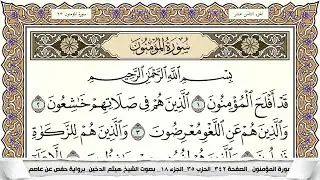 الجزء الثامن عشر
سورة المؤمنون ٢٣
سُورَةُ الْمُؤْمِنُونَ
بِسْمِ اللَّهِ الرَّحْمَٰنِ الرَّحِيمِ
قَدْ أَفْلَحَ الْمُؤْمِنُونَ ١ الَّذِينَ هُمْ فِي صَلَاتِهِمْ خَاشِعُونَ ٢
وَالَّذِينَ هُمْ عَنِ اللَّغْوِ مُعْرِضُونَ ٣ وَالَّذِينَ هُمْ لِلزَّكَاةِ
سورة المؤمنون . الصفحة ٣٤٢ . الحزب ٣٥ . الجزء ١٨ . بصوت الشيخ هيثم الدخين . برواية حفص عن عاصم